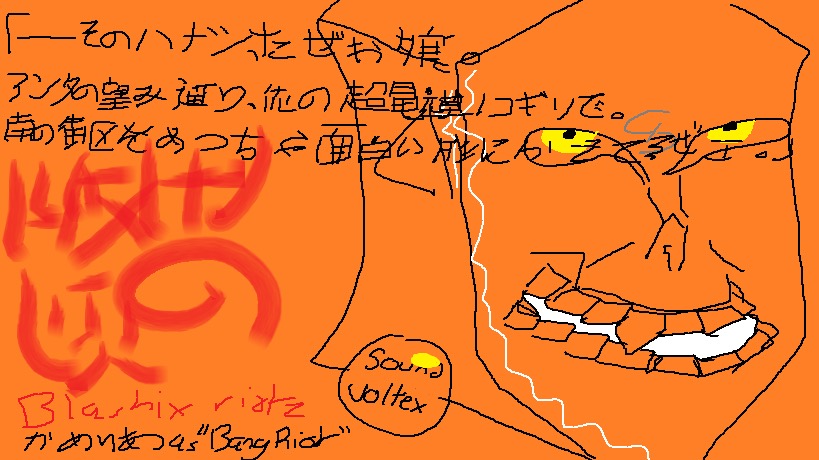 「──そのハナシ、たぜお嬢
アンタの望み通り、の超電導ノコギリで。
南の街区をめっちゃ面白い形に
の
Blastix riotz
かめりあ as "Bang Riot"
Sound
Voltex